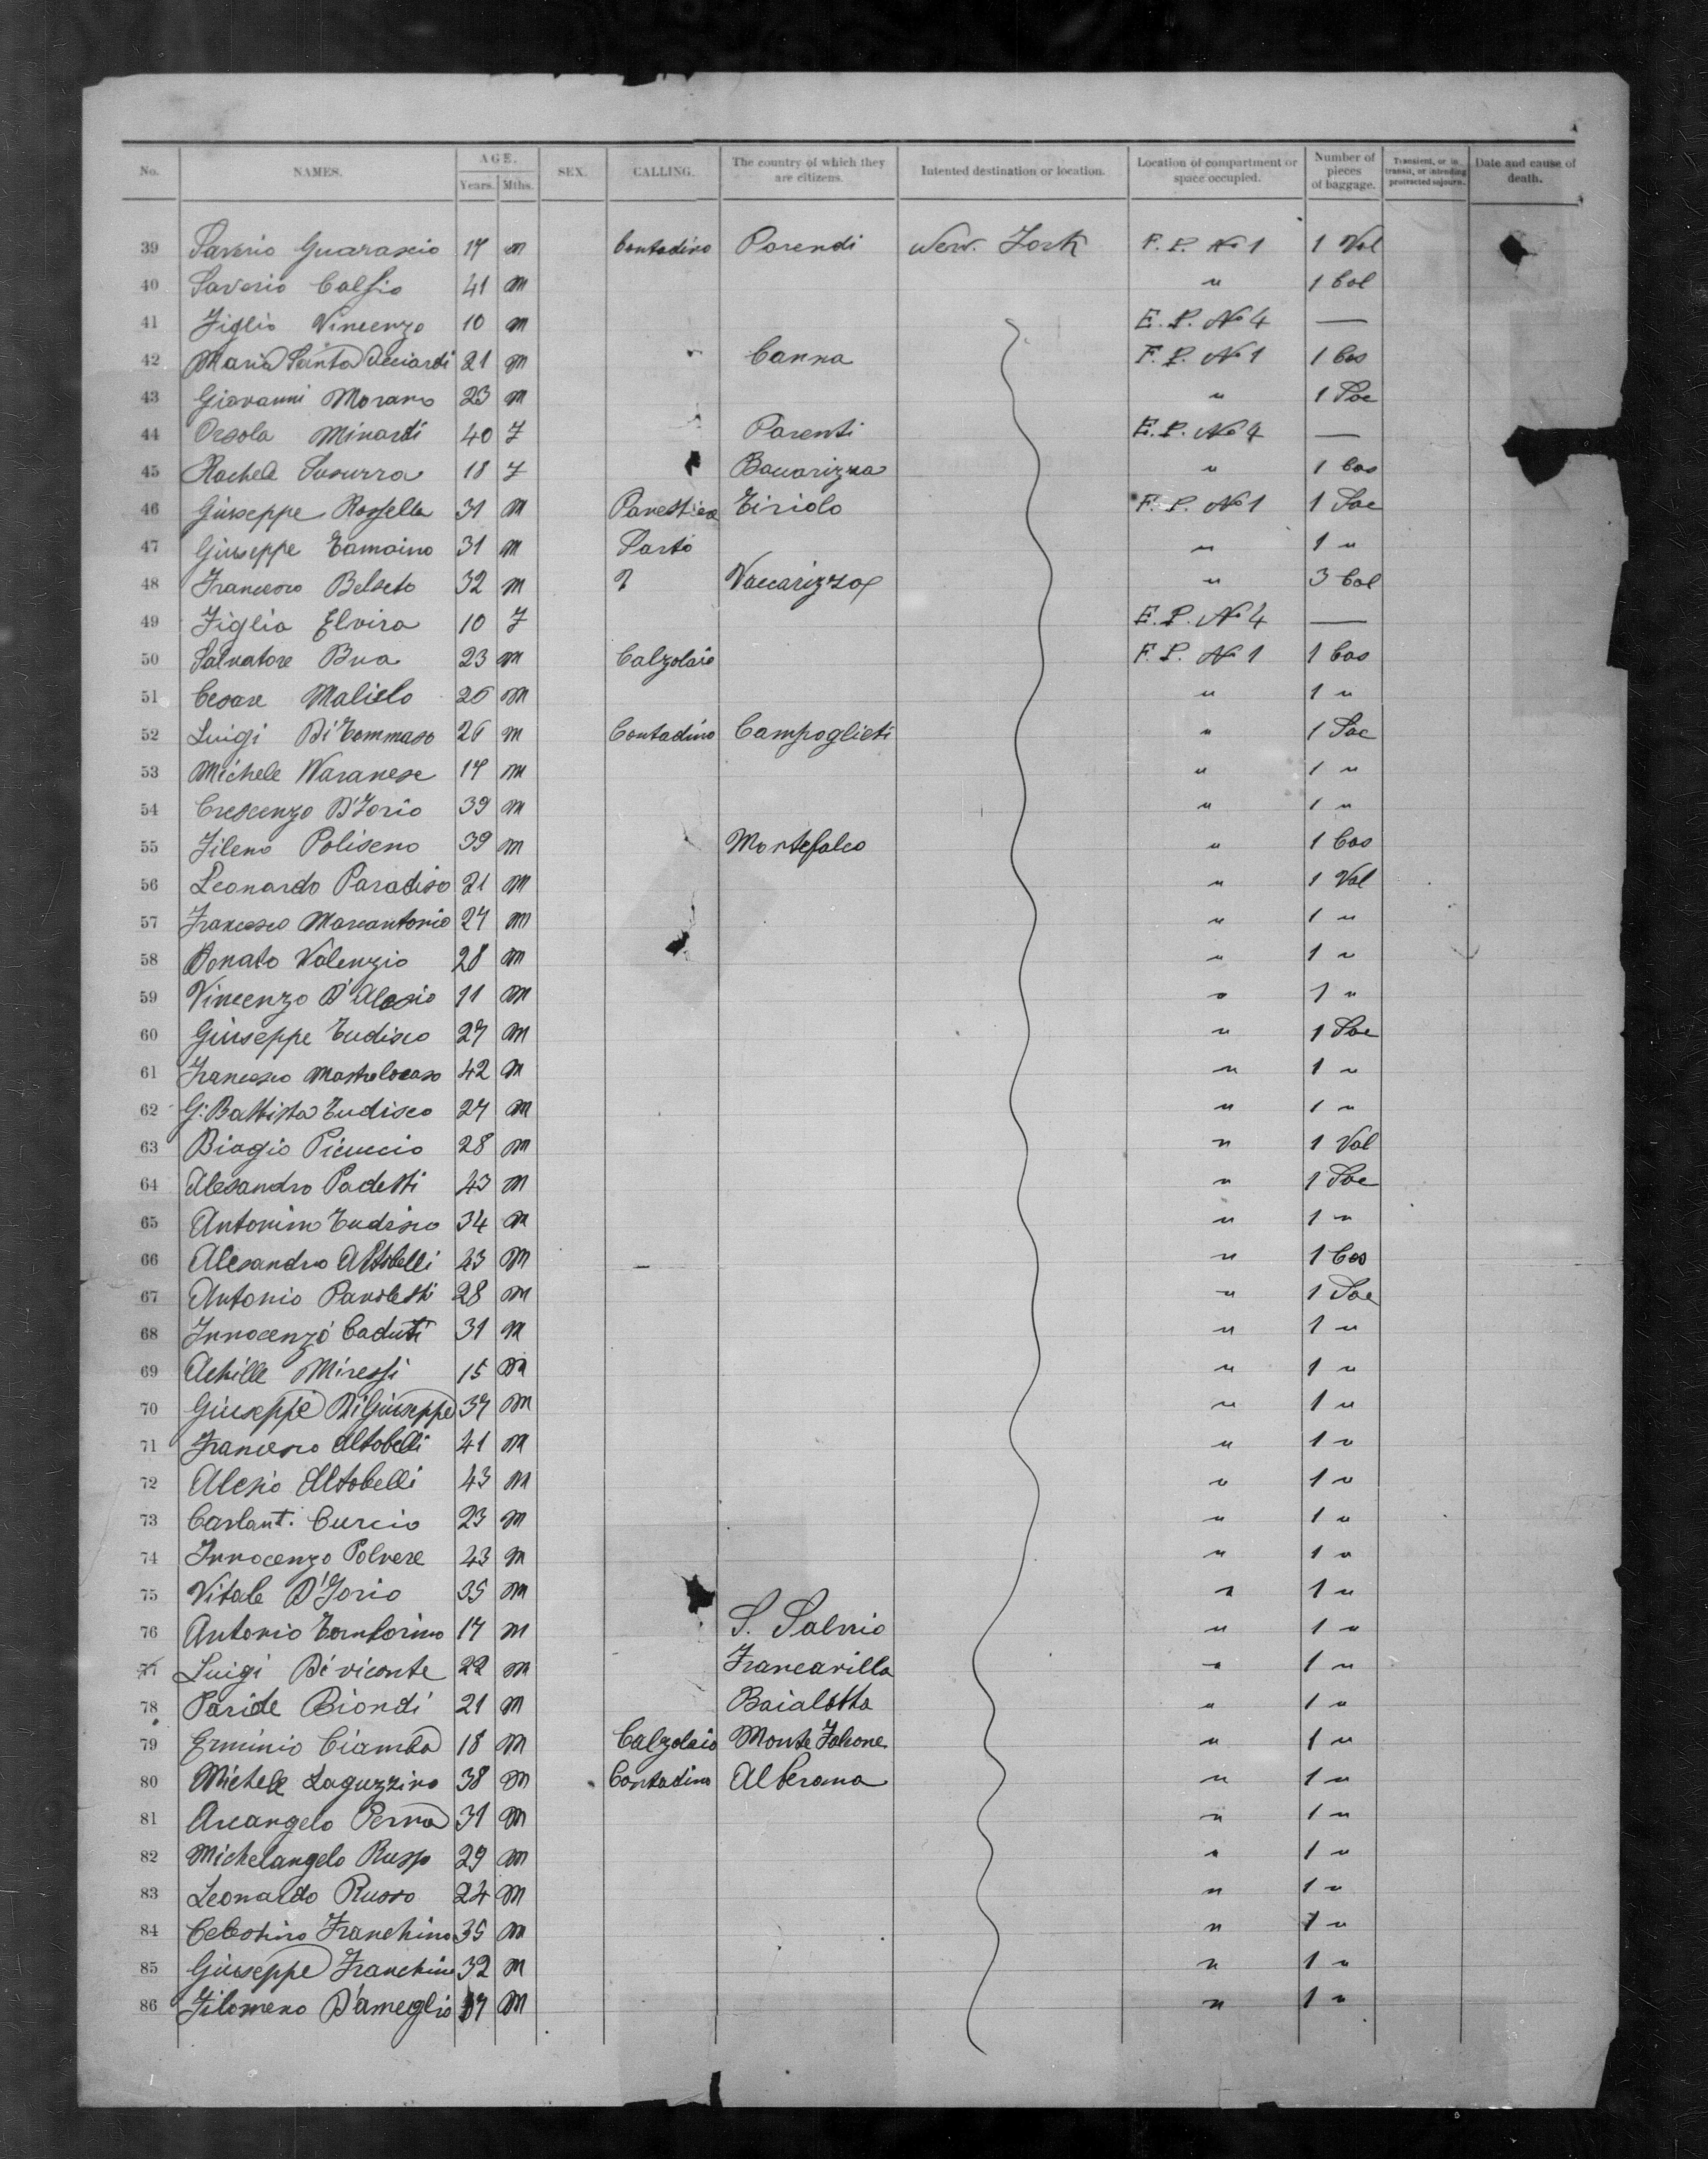 No. NAMES. AGE. Years. Mths. SEX. CALLING. The country of which they are citizens. Intented destination or location. Location of compartment or space occupied. Number of pieces of baggage. Transient, or in transit, or intending protracted sojourn. Date and cause of death.
39 Saverio Guarascio 17 m Contadino Parendi New. York F. P. No 1 1 Val
40 Saverio Calfio 41 m " 1 Col
41 Figlio Vincenzo 10 m E. P. No 4 —
42 Maria Santa Acciardi 21 m Canna F. P. No 1 1 Cas
43 Giovanni Morano 23 m " 1 Sac
44 Orsola Minardi 40 F Parenti E. P. No 4 —
45 Rachele Susurra 18 F Baccarizza " 1 Cas
46 Giuseppe Rossella 31 m Tiriolo F. P. No 1 1 Sac
47 Giuseppe Tamaino 31 m Sarto " 1 "
48 Francesco Belseto 32 m Vaccarizza " 3 Col
49 Figlia Elvira 10 F E. P. No 4 —
50 Salvatore Bua 23 m Calzolaio F. P. No 1 1 Cas
51 Cesare 26 m " 1 "
52 Luigi Di Tommaso 26 m Contadino Campoglieti " 1 Sac
53 Michele Waranese 17 m " 1 "
54 Crescenzo D'Iorio 39 m " 1 "
55 Fileno Poliseno 39 m Montefalco " 1 Cas
56 Leonardo Paradiso 21 m " 1 Val
57 Francesco Marcantonio 27 m " 1 "
58 Donato Valenzio 28 m " 1 "
59 Vincenzo D'Alesio 11 m " 1 "
60 Giuseppe Tudisco 27 m " 1 Sac
61 Francesco 42 m " 1 "
62 G: Battista Tudisco 27 m " 1 "
63 Biagio Picuccio 28 m " 1 Val
64 Alesandro Padetti 43 m " 1 Sac
65 Antonino Tudisco 34 m " 1 "
66 Alesandro Altobelli 43 m " 1 Cas
67 Antonio Panoletti 28 m " 1 Sac
68 Innocenzo Caduti 31 m " 1 "
69 Achille Miressi 15 m " 1 "
70 Giuseppe Di Giuseppe 37 m " 1 "
71 Francesco Altobelli 41 m " 1 "
72 Alesio Altobelli 43 m " 1 "
73 Carlant. Curcio 23 m " 1 "
74 Innocenzo Polvere 43 m " 1 "
75 Vitale D'Iorio 35 m " 1 "
76 Antonio 17 m S. Salvio " 1 "
77 Luigi Di viconte 22 m Francavilla " 1 "
78 Paride Biondi 21 m Baialotta " 1 "
79 Erminio Ciamba 18 m Calzolaio Monte Falcone " 1 "
80 Michele Laguzzino 38 m Contadino Alberona " 1 "
81 Arcangelo Perna 31 m " 1 "
82 Michelangelo Russo 29 m " 1 "
83 Leonardo Russo 24 m " 1 "
84 Celestino Franchino 35 m " 1 "
85 Giuseppe Franchino 32 m " 1 "
86 Filomeno D'ameglio 37 m " 1 "